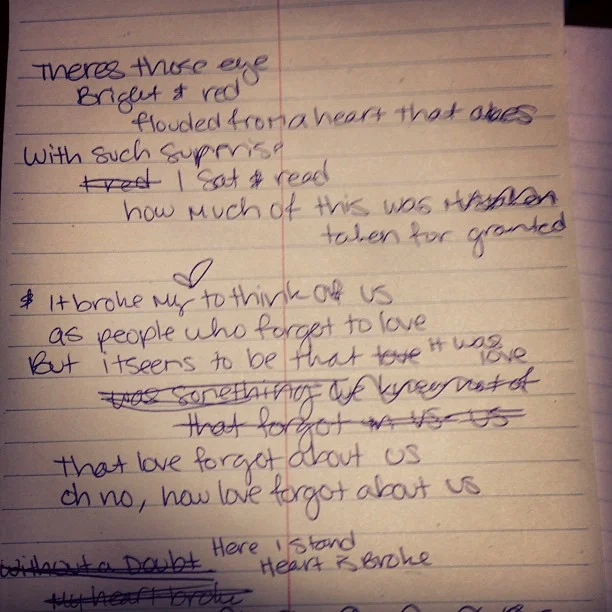 Theres those eye
Bright & red
flouded from a heart that
With such supprise
I sat & read
how much of this was
taken for granted
& It broke my ♡ to think of us
as people who forgot to love
But it seems to be that love it was
love
was something
that forgot in us us
that love forgot about us
oh no, how love forgot about us
Here I stand
Without a Doubt Heart is Broke
My heart broke